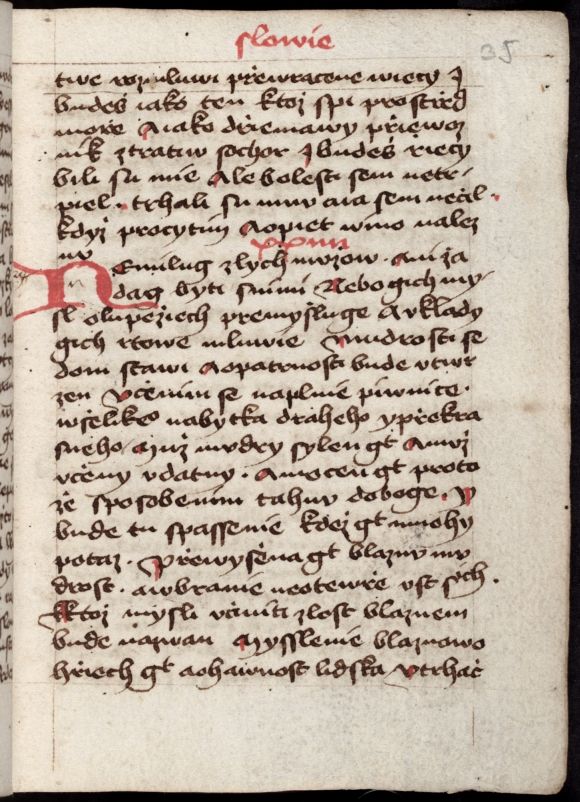 slowie
35
twe rozmluwi přewracene wiecy J
budeš iako ten ktoz spi prostřed
more Aiako dřiemawy přiewoz
nik ztratiw sochor J budeš řiecy
bili su mie Ale bolesti sem netr-
piel. trhali su mnu aia sem nečil.
kdyz procytim Aopiet wino nalez
nu xxiiii
Nemilug zlych mužow. ani žá
dag byti snimi Nebo gich my-
sl olupeziech přemyšluge Avklady
gich rtowe mluwie Mudrosti se
dom stawi Aopatrnosti bude vtwr
zen Včenim se naplnie piwnice.
wšelikeo nabytka draheho ypřekra
sneho. Muž mudry sylen gt Amuž
včeny vdatny. Amocen gt proto
že sposobenim tahnu doboge. Y
bude tu spassenie kdež gt mnohy
potaz. Přewyšena gt blaznu mu
drost. awbranie neotewře vst sych.
Ktoz mysli včiniti zlost blaznem
bude nazwan Mysslenie blaznowo
hřiech gt aohawnost lidska Vtrhač